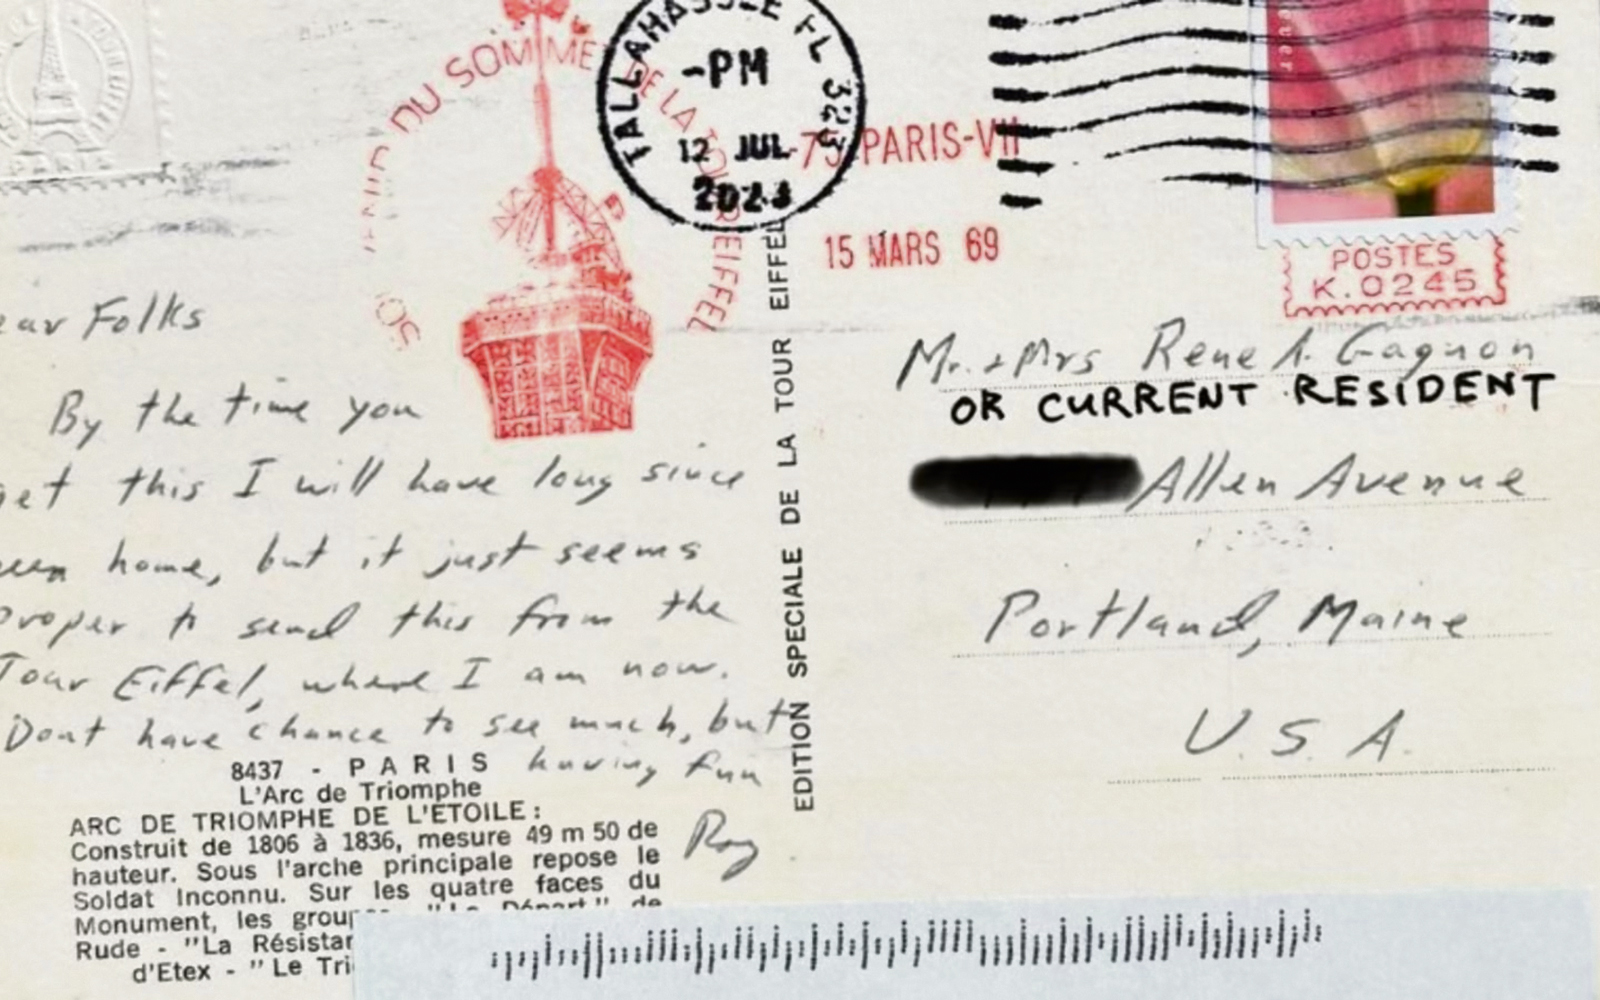 PARIS
DU SOMMET DE LA TOUR EIFFEL
TALLAHASSEE FL 323
-PM
12 JUL
2023
-75 PARIS-VII
15 MARS 69
POSTES
K.0245
ear Folks
By the time you
get this I will have long since
een home, but it just seems
proper to send this from the
Tour Eiffel, where I am now.
Dont have chance to see much, but
having fun
Roy
8437 - PARIS
L'Arc de Triomphe
ARC DE TRIOMPHE DE L'ETOILE :
Construit de 1806 à 1836, mesure 49 m 50 de
hauteur. Sous l'arche principale repose le
Soldat Inconnu. Sur les quatre faces du
Monument, les group "Le Départ" de
Rude - "La Résistan
d'Etex - "Le Tri
EDITION SPECIALE DE LA TOUR EIFFEL
Mr. + Mrs Rene A. Gagnon
OR CURRENT RESIDENT
Allen Avenue
Portland, Maine
U.S.A.